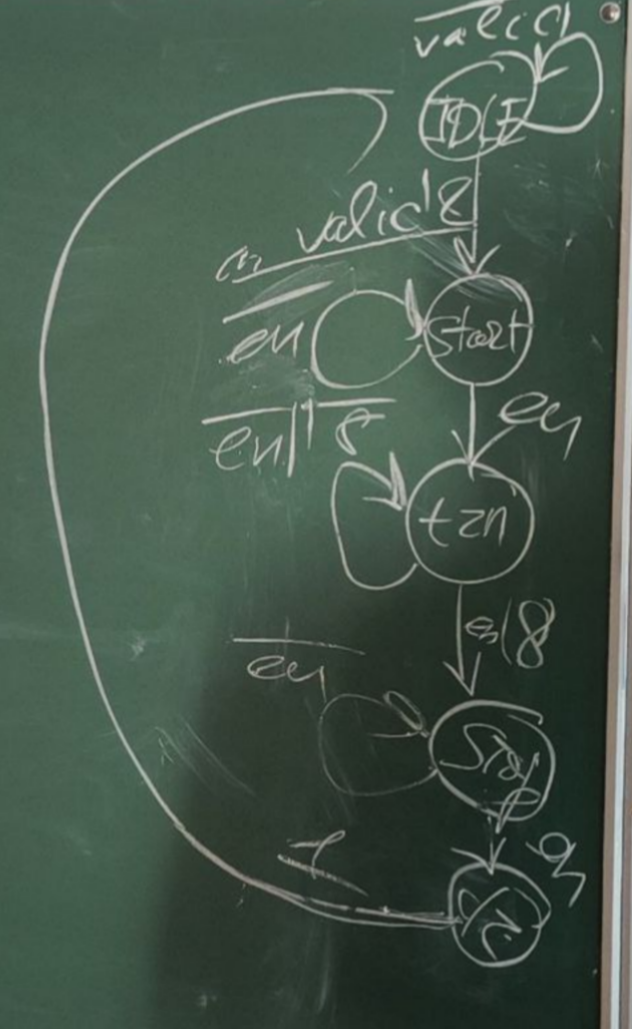 valid
IDLE
valid &
en
en
Start
en
en | 8
tzn
en | 8
en
Stop
en
1